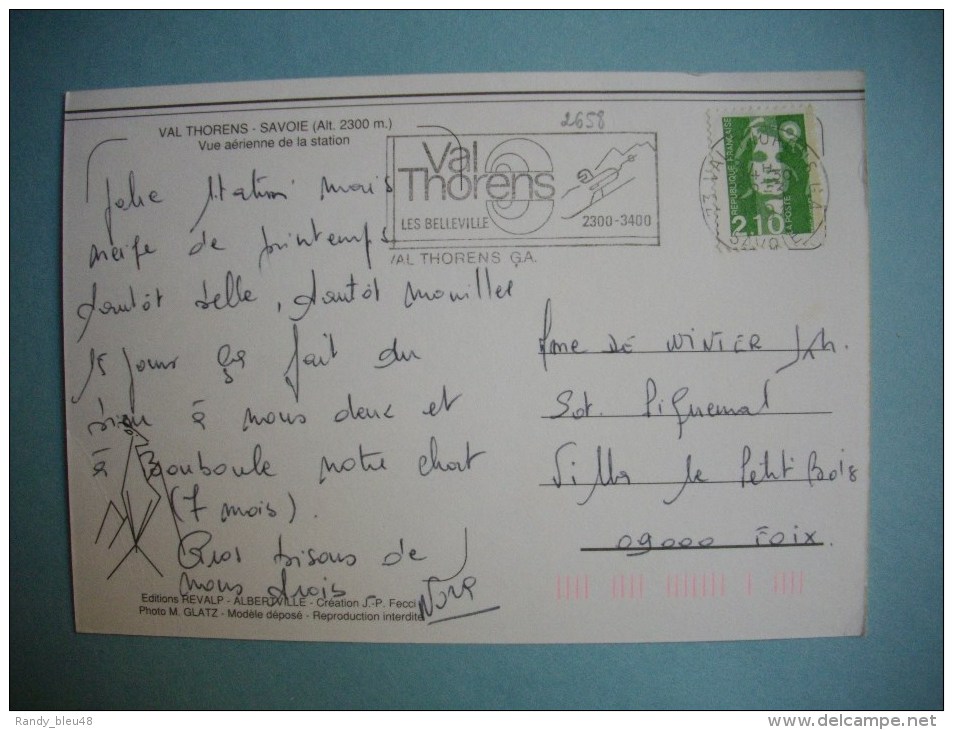 VAL THORENS - SAVOIE (Alt. 2300 m.)
Vue aérienne de la station
2658
Val
Thorens
LES BELLEVILLE
2300-3400
VAL THORENS G.A.
REPUBLIQUE FRANÇAISE
2,10
LA POSTE
73 VAL
SAVOIE
Jolie station mais
neige de printemps
tantôt belle, tantôt mouillée
15 jours ça fait du
bien à nous deux et
à Bouboule notre chat
(7 mois).
Gros bisous de
nous trois
Mme DE WINTER
Lot. Piquemal
Villa le Petit Bois
09000 FOIX.
Editions REVALP - ALBERTVILLE - Création J.-P. Fecci
Photo M. GLATZ - Modèle déposé - Reproduction interdite
Randy_bleu48
delcampe.net